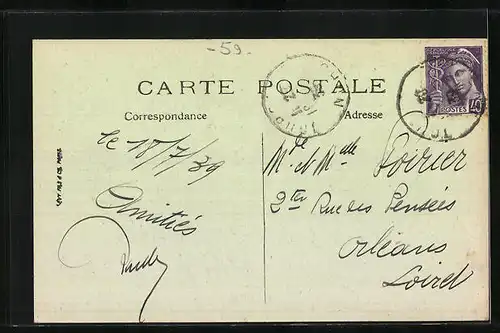 -59-
CARTE POSTALE
Correspondance
Adresse
POSTES
40
le 18/7/39
Amitiés
Mr et Mme Poirier
2ter Rue des Pensées
Orléans
Loiret